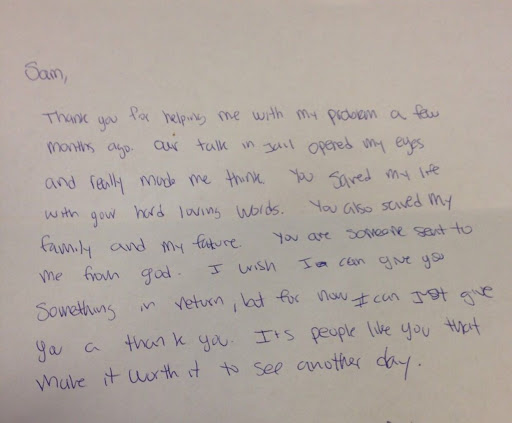 Sam,
Thank you for helping me with my problem a few
months ago. Our talk in jail opened my eyes
and really made me think. You saved my life
with your hard loving words. You also saved my
family and my future. You are someone sent to
me from god. I wish I can give you
something in return, but for now I can just give
you a thank you. It's people like you that
make it worth it to see another day.